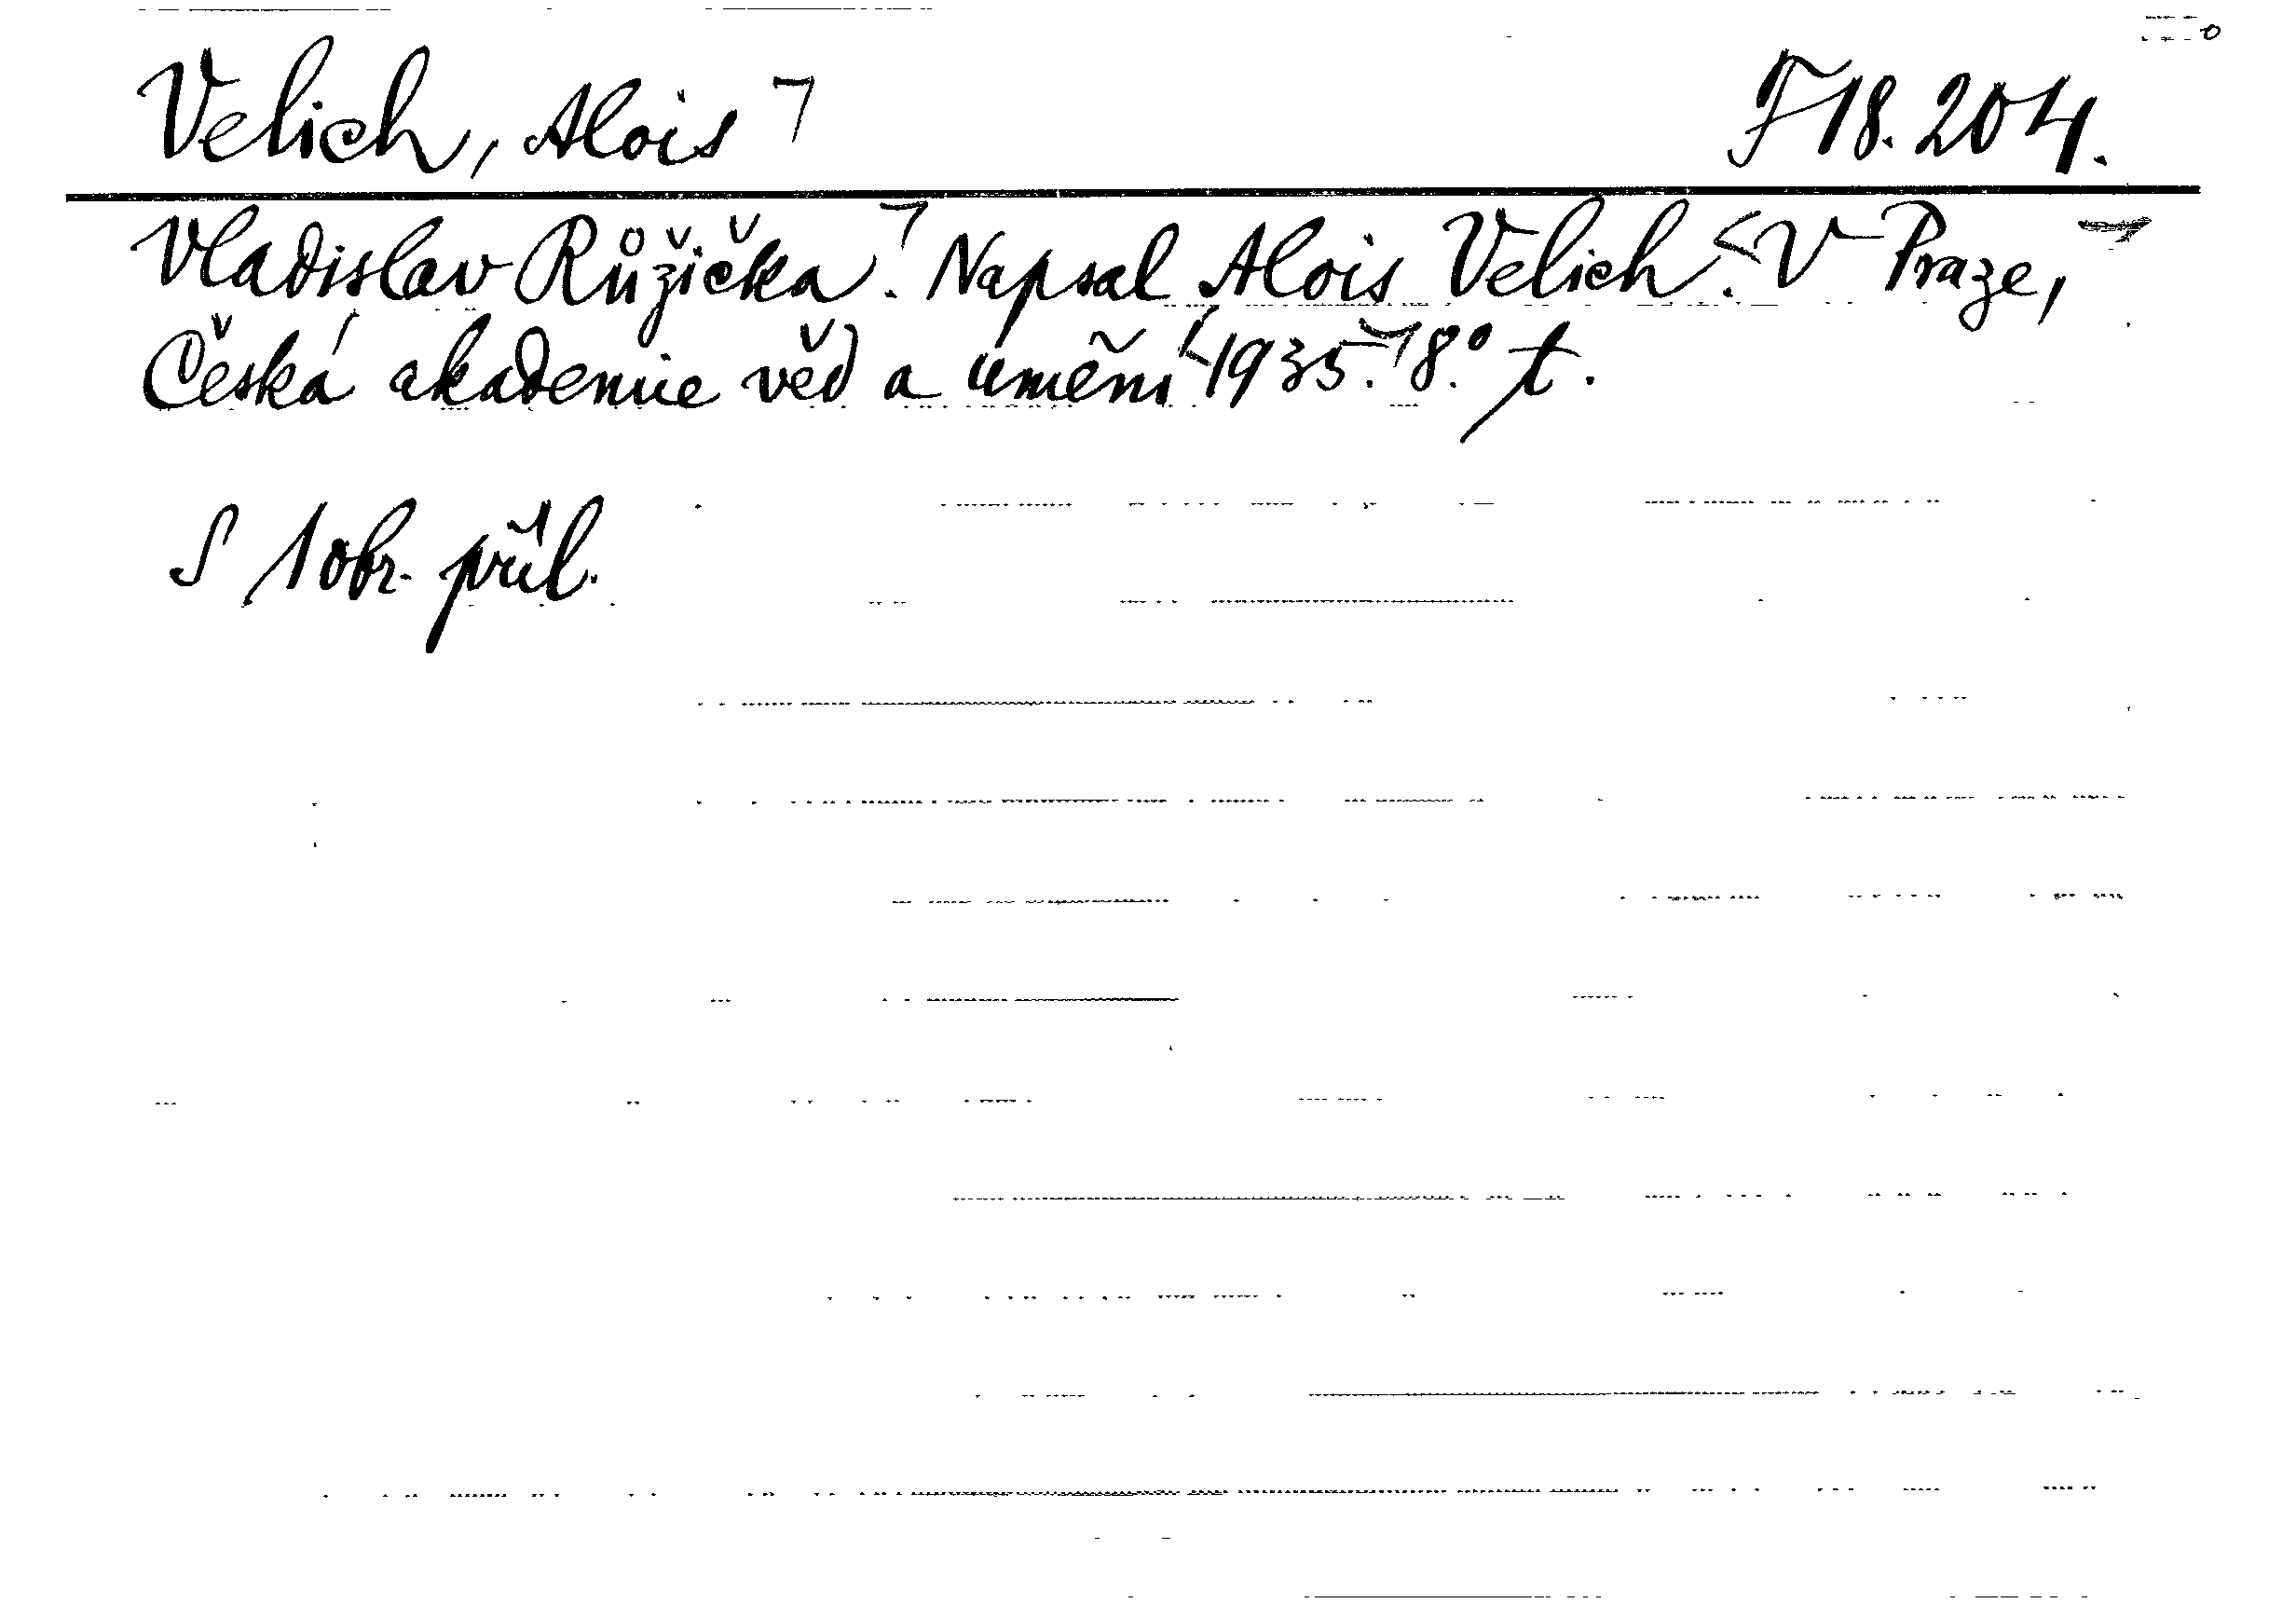 Velich, Alois ㄱ F 18.204.
Vladislav Růžička. Napsal Alois Velich. V Praze,
Česká akademie věd a umění 1935. 8° t.
S 1 obr. příl.